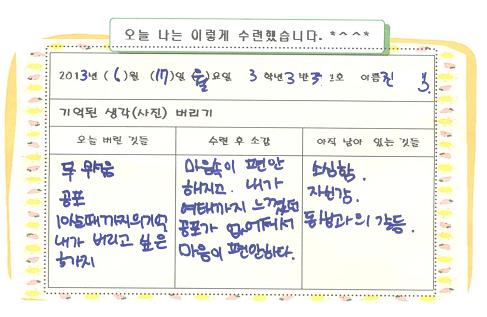 오늘 나는 이렇게 수련했습니다. *^^*
2013년 (6)월 (17)일 (월)요일 3학년 3반 번호 이름
기억된 생각(사진) 버리기
오늘 버린 것들
수련 후 소감
아직 남아 있는 것들
무서움
공포
10살때까지의기억
내가 버리고 싶은
한가지
마음속이 편안
해지고. 내가
여태까지 느꼈던
공포가 없어져서
마음이 편안하다.
소심함.
자신감.
동생과의 갈등.